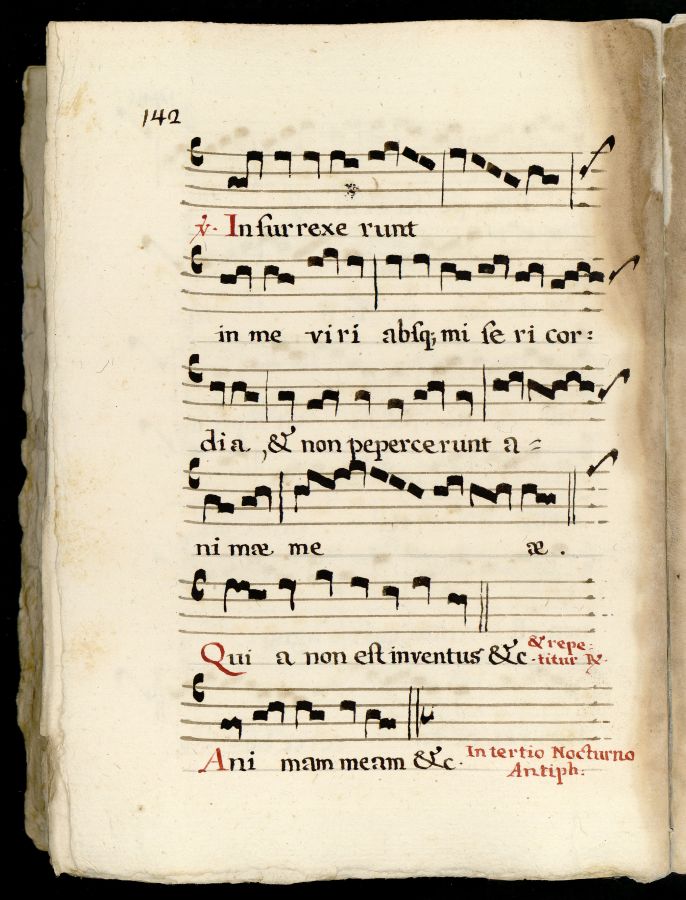 142
℣. In ſurrexe runt
in me viri abſq; mi ſe ri cor:
dia, & non pepercerunt a=
ni mæ me æ.
Qui a non eſt inventus &c & repe:
-titur ℟.
Ani mam meam &c. In tertio Nocturno
Antiph: